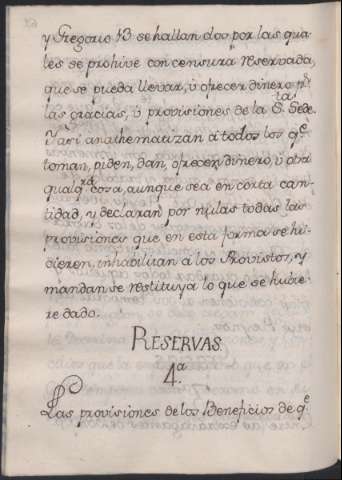 y Gregorio 13 se hallan dos por las qua
les se prohive con censura reservada,
que se pueda llevar, ù ofrecer dinero pr.
las gracias, ù provisiones de la S.ta Sede.
Y asi anathematizan à todos los qe.
toman, piden, dan, ofrecen dinero, ù otra
qualqra. cosa, aunque sea en corta can
tidad, y declaran por nulas todas las
provisiones que en esta forma se hi-
cieren, inhabilitan a los Provistos, y
mandan se restituya lo que se hubie-
re dado.
RESERVAS.
4.a
Las provisiones de los Beneficios de qe.